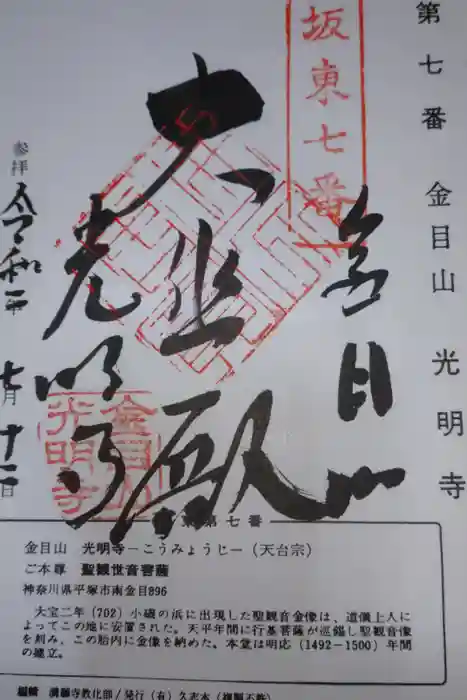 第七番 金目山 光明寺
坂東七番
金目山
大悲殿
光明寺
参拝 令和二年 七月十二日
金目山
光明寺
第七番
金目山 光明寺−こうみょうじ−(天台宗)
ご本尊 聖観世音菩薩
神奈川県平塚市南金目896
大宝二年(702)小磯の浜に出現した聖観音金像は、道儀上人に
よってこの地に安置された。天平年間に行基菩薩が巡錫し聖観音像
を刻み、この胎内に金像を納めた。本堂は明応(1492−1500)年間
の建立。
編輯 満願寺教化部/発行(有)久志本(複製不許)